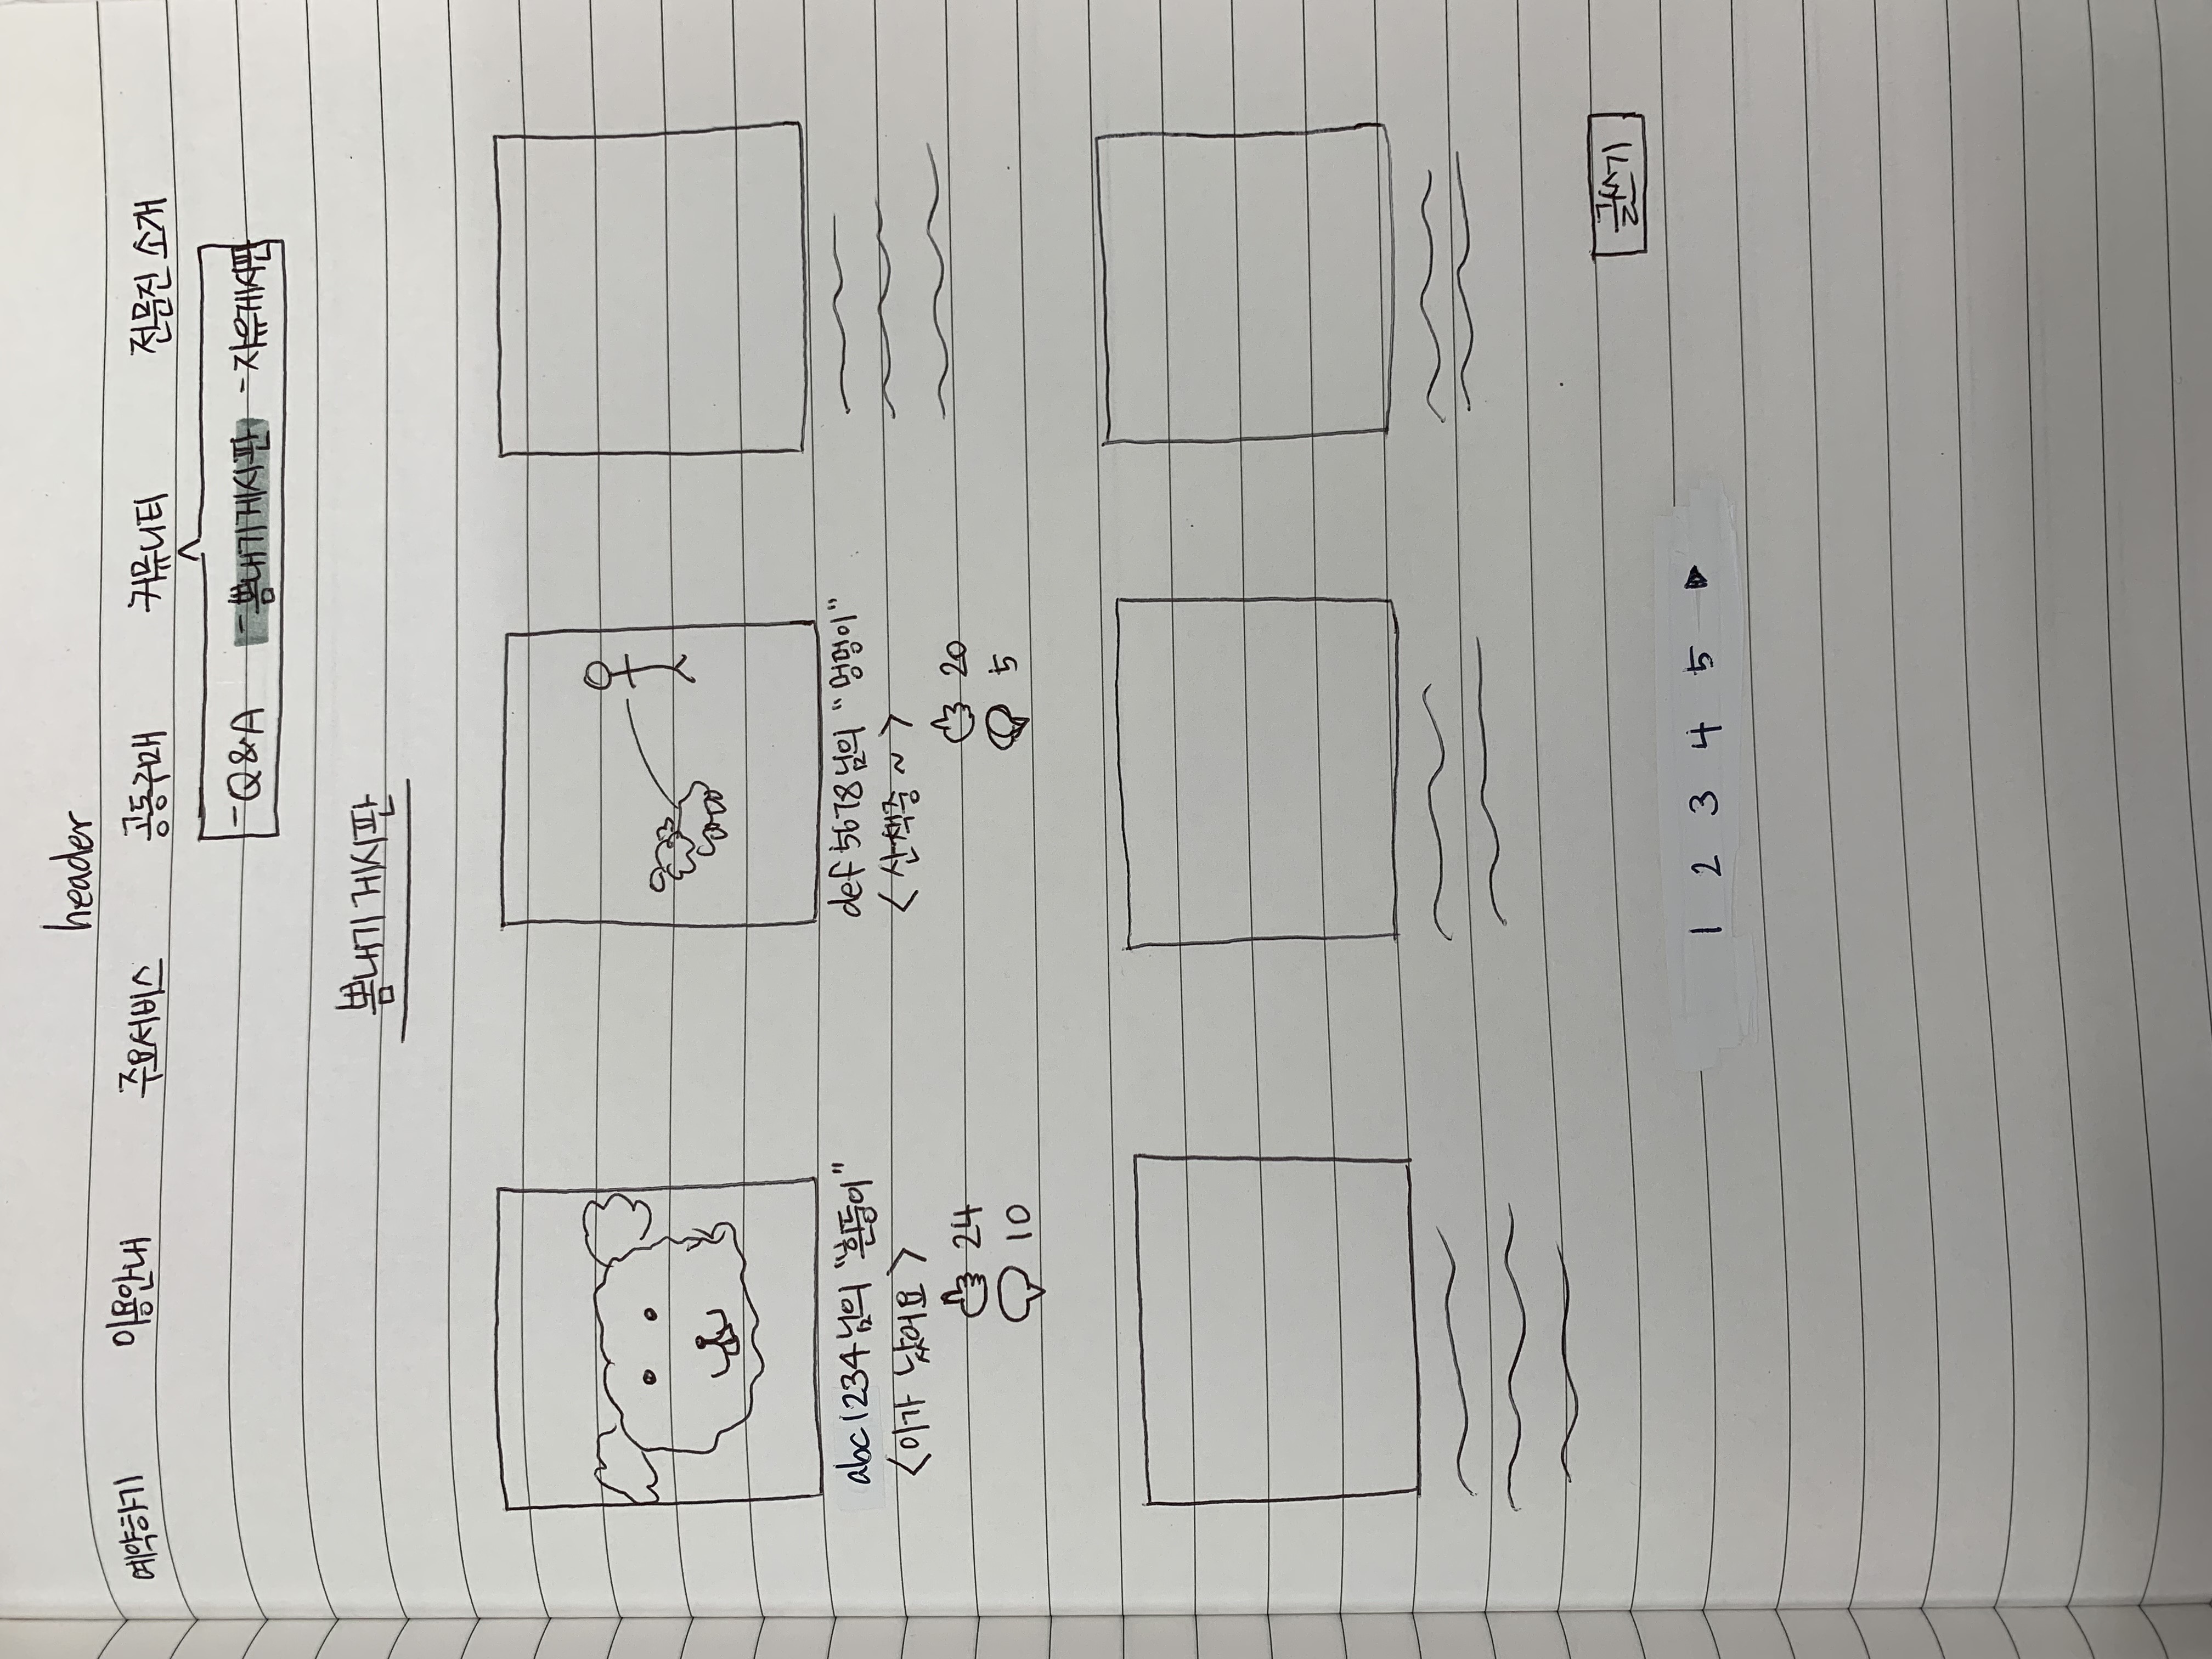 header
예약하기 이용안내 주요서비스 공동구매 커뮤니티 전문진 소개
-Q&A -뽐내기게시판 -자유게시판
뽐내기 게시판
abc1234님의 "흰둥이"
<이가 났어요>
24
10
def5678님의 "멍멍이"
<산책중~>
20
5
글쓰기
1 2 3 4 5 ▶